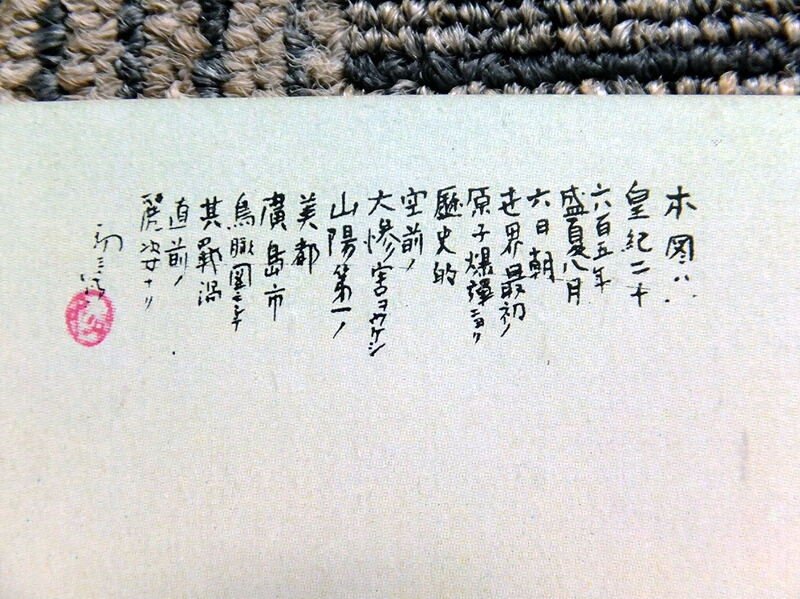 本図ハ
皇紀二千
六百五年
盛夏八月
六日朝
世界最初ノ
原子爆弾ニヨリ
歴史的
空前ノ
大惨害ヲウケシ
山陽第一ノ
美都
廣島市
鳥瞰圖ニシテ
其戦渦
直前ノ
麗姿ナリ
初三郎